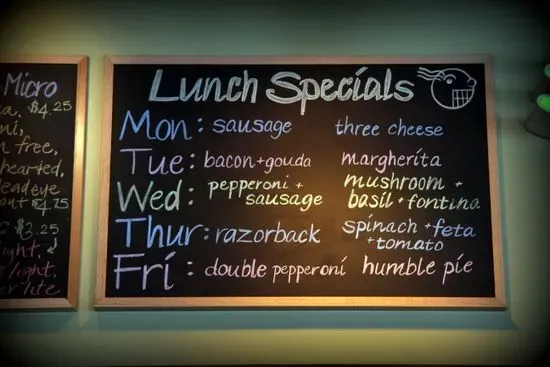 Micro
$4.25
free,
hearted,
$4.75
$3.25
Lunch Specials
Mon: sausage three cheese
Tue: bacon+gouda margherita
Wed: pepperoni + sausage mushroom + basil + fontina
Thur: razorback spinach + feta + tomato
Fri: double pepperoni humble pie